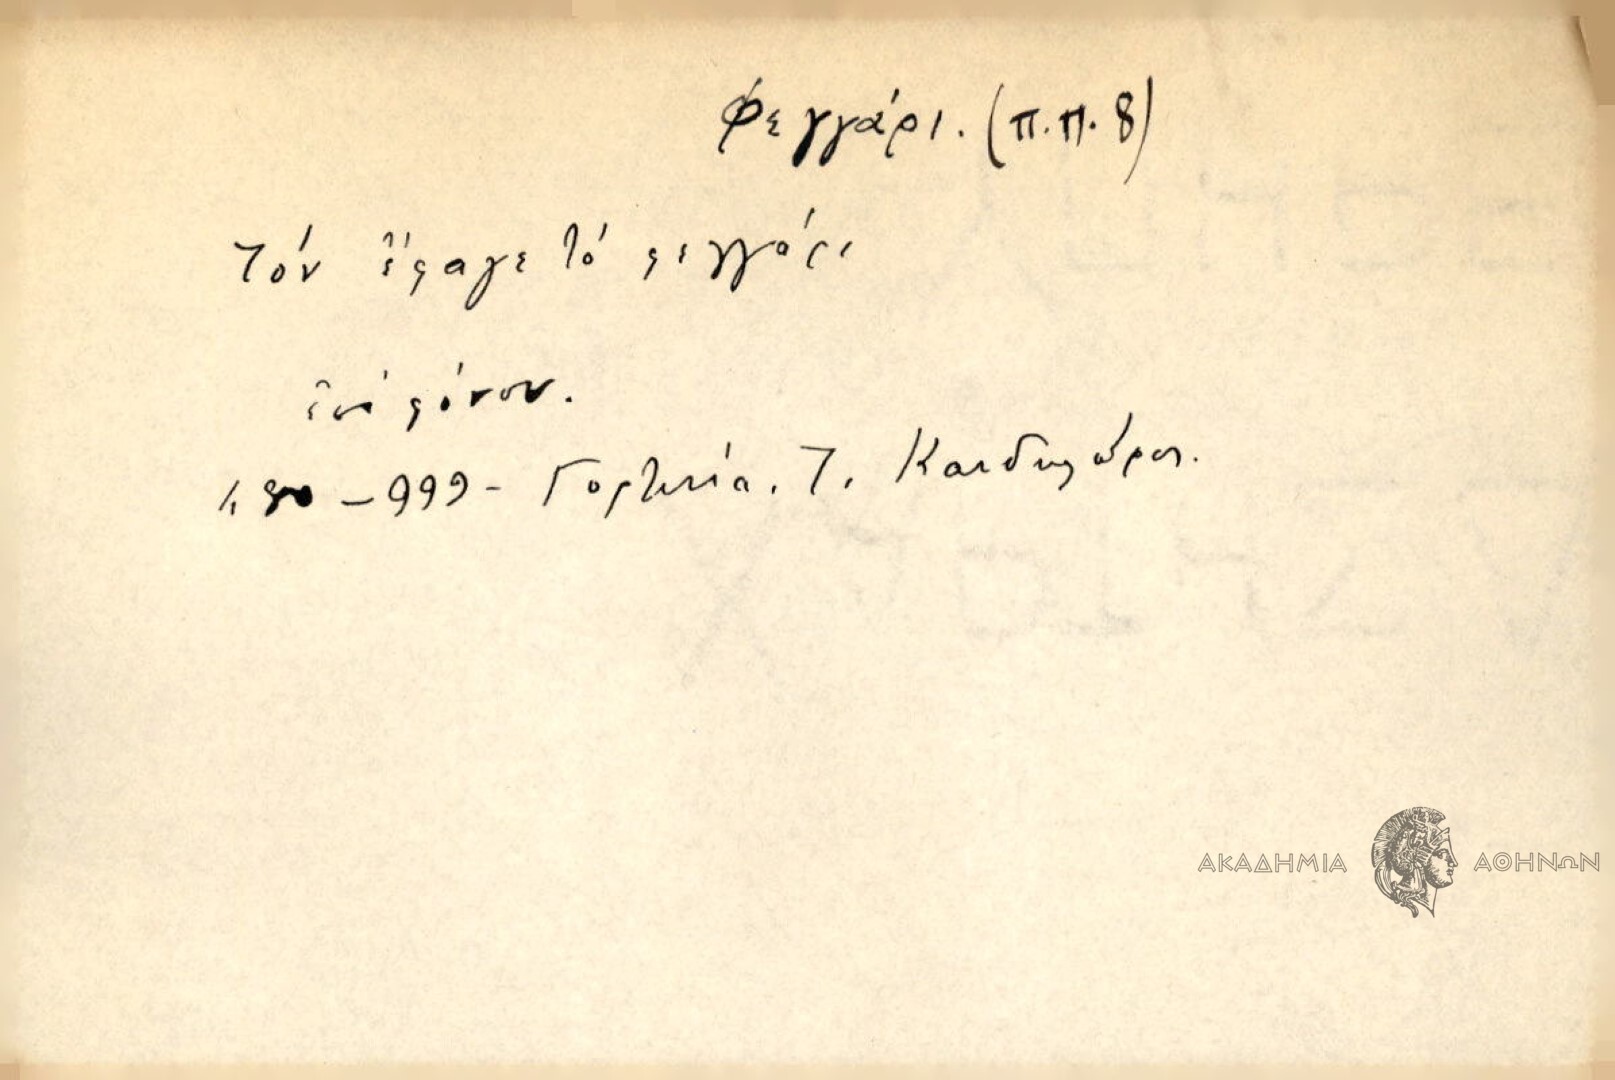 Φεγγάρι. (π.π. 8)
Τόν ἔφαγε τό φεγγάρι
ἐπί φόνου.
λ. 80 - 999 - Γορτυνία. Τ. Κανδηλῶρος.
ΑΚΑΔΗΜΙΑ ΑΘΗΝΩΝ